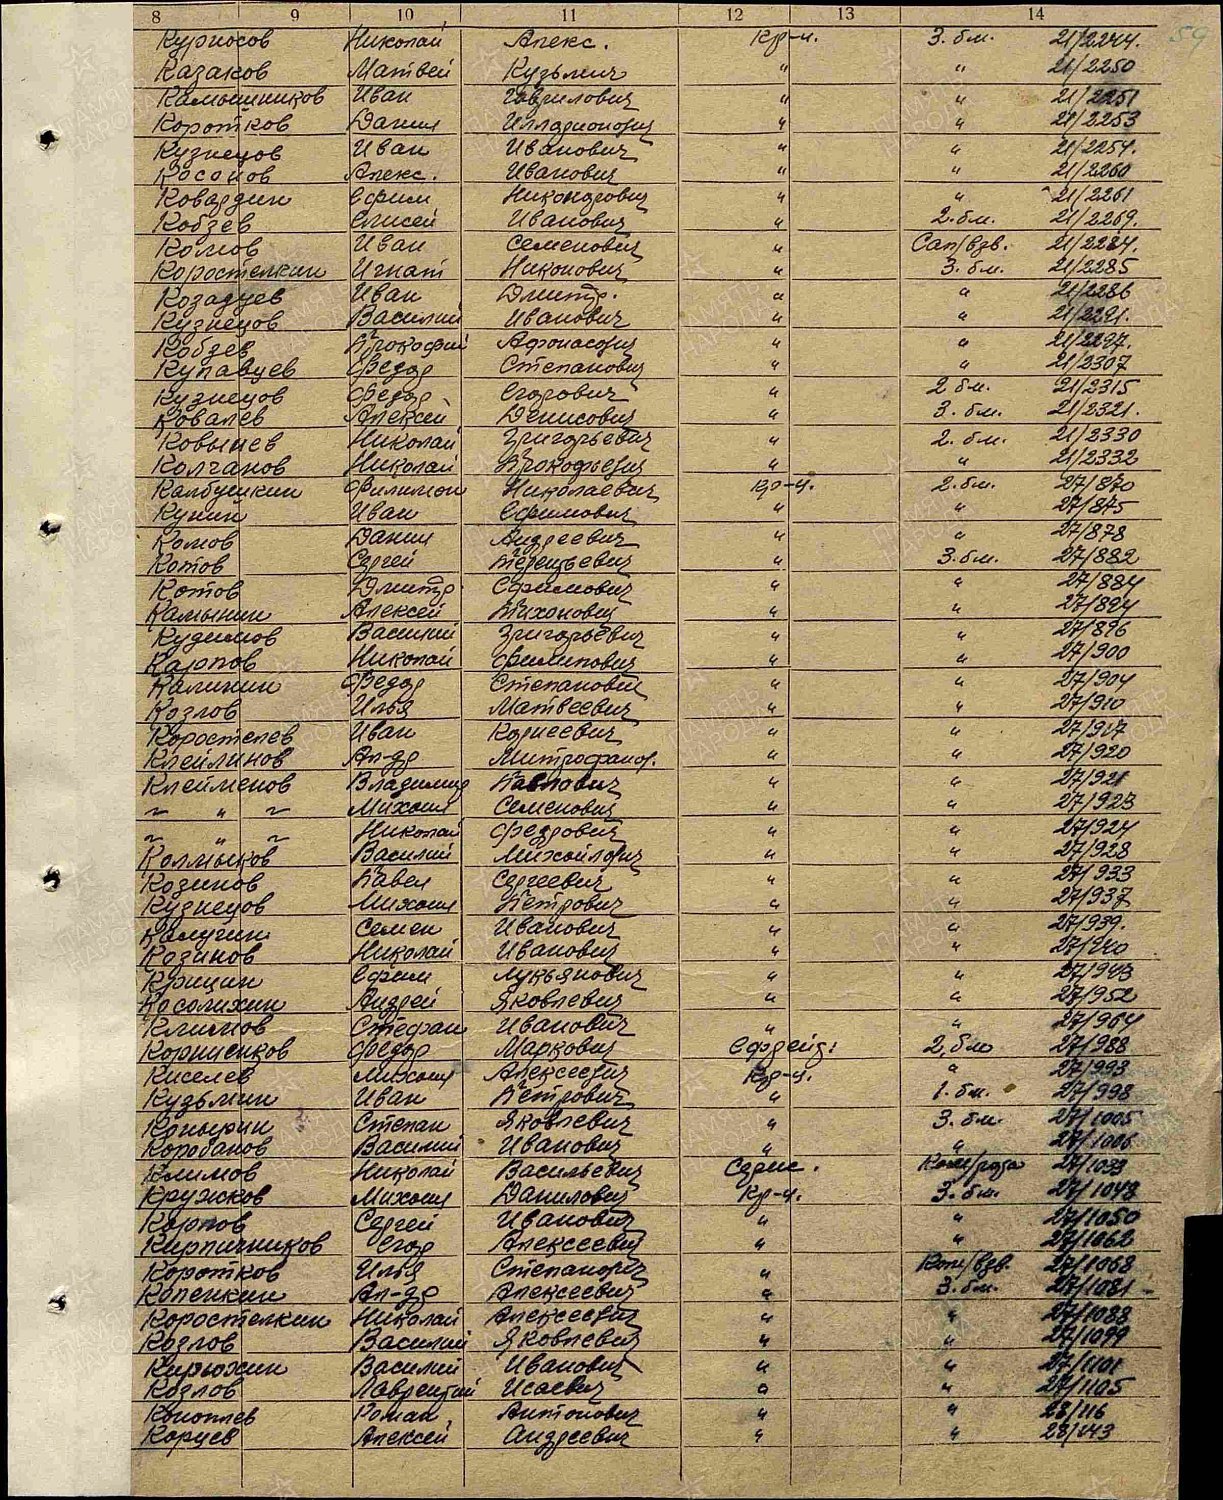 8 9 10 11 12 13 14
59
Курносов Николай Алекс. Кр-ц. 3. бт. 21/2244.
Казаков Матвей Кузьмич " " 21/2250
Камышников Иван Гаврилович " " 21/2251
Коротков Данил Илларионович " " 21/2253
Кузнецов Иван Иванович " " 21/2254.
Косонов Алекс. Иванович " " 21/2260
Ковардин Ефим Никондрович " " 21/2261
Кобзев Елисей Иванович " 2. бт. 21/2269.
Комов Иван Семенович " Сап/взв. 21/2284.
Коростелкин Игнат Никонович " 3. бт. 21/2285
Козадуев Иван Дмитр. " " 21/2286
Кузнецов Василий Иванович " " 21/2291.
Кобзев Прокофий Афонасович " " 21/2297.
Купавцев Федор Степанович " " 21/2307
Кузнецов Федор Егорович " 2 бт. 21/2315
Ковалев Алексей Денисович " 3. бт. 21/2321.
Ковынев Николай Григорьевич " 2. бт. 21/2330
Колчанов Николай Прокофьевич " " 21/2332
Калбушкин Филимон Николаевич Кр-ц. 2. бт. 27/870
Кунин Иван Ефимович " " 27/875
Комов Данил Андреевич " " 27/878
Котов Сергей Терентьевич " 3. бт. 27/882
Котов Дмитр. Ефимович " " 27/884
Камынин Алексей Тихонович " " 27/894
Кудимов Василий Григорьевич " " 27/896
Карпов Николай Филипович " " 27/900
Калинин Федор Степанович " " 27/904
Козлов Илья Матвеевич " " 27/910
Коростелев Иван Корнеевич " " 27/917
Клейлинов Ал-др Митрофанов. " " 27/920
Клейменов Владимир Павлович " " 27/921
~ " ~ Михаил Семенович " " 27/923
~ " ~ Николай Федорович " " 27/924
Колмыков Василий Михайлович " " 27/928
Козинов Павел Сергеевич " " 27/933
Кузнецов Михаил Петрович " " 27/937
Калугин Семен Иванович " " 27/939.
Козинов Николай Иванович " " 27/940
Крицин Ефим Лукьянович " " 27/943
Косолихин Андрей Яковлевич " " 27/952
Климов Стефан Иванович " " 27/964
Корниенков Федор Маркович Ефрейт. 2, бт 27/988
Киселев Михаил Алексеевич Кр-ц. " 27/993
Кузьмин Иван Петрович " 1. бт. 27/998
Степан Яковлевич " 3. бт. 27/1005
Коробанов Василий Иванович " " 27/1006
Климов Николай Васильевич Серж. 27/1033
Кружков Михаил Данилович Кр-ц. 3. бт. 27/1048
Карпов Сергей Иванович " " 27/1050
Кирпичников Егор Алексеевич " " 27/1062
Коротков Илья Степанович " 27/1068
Копенкин Ал-др Алексеевич " 3. бт. 27/1081
Коростелкин Николай Алексеевич " " 27/1088
Козлов Василий Яковлевич " " 27/1099
Кирюхин Василий Иванович " " 27/1101
Козлов Лаврентий Исаевич " " 27/1105
Коноплев Роман Антонович " " 28/116
Корнев Алексей Андреевич " " 28/143